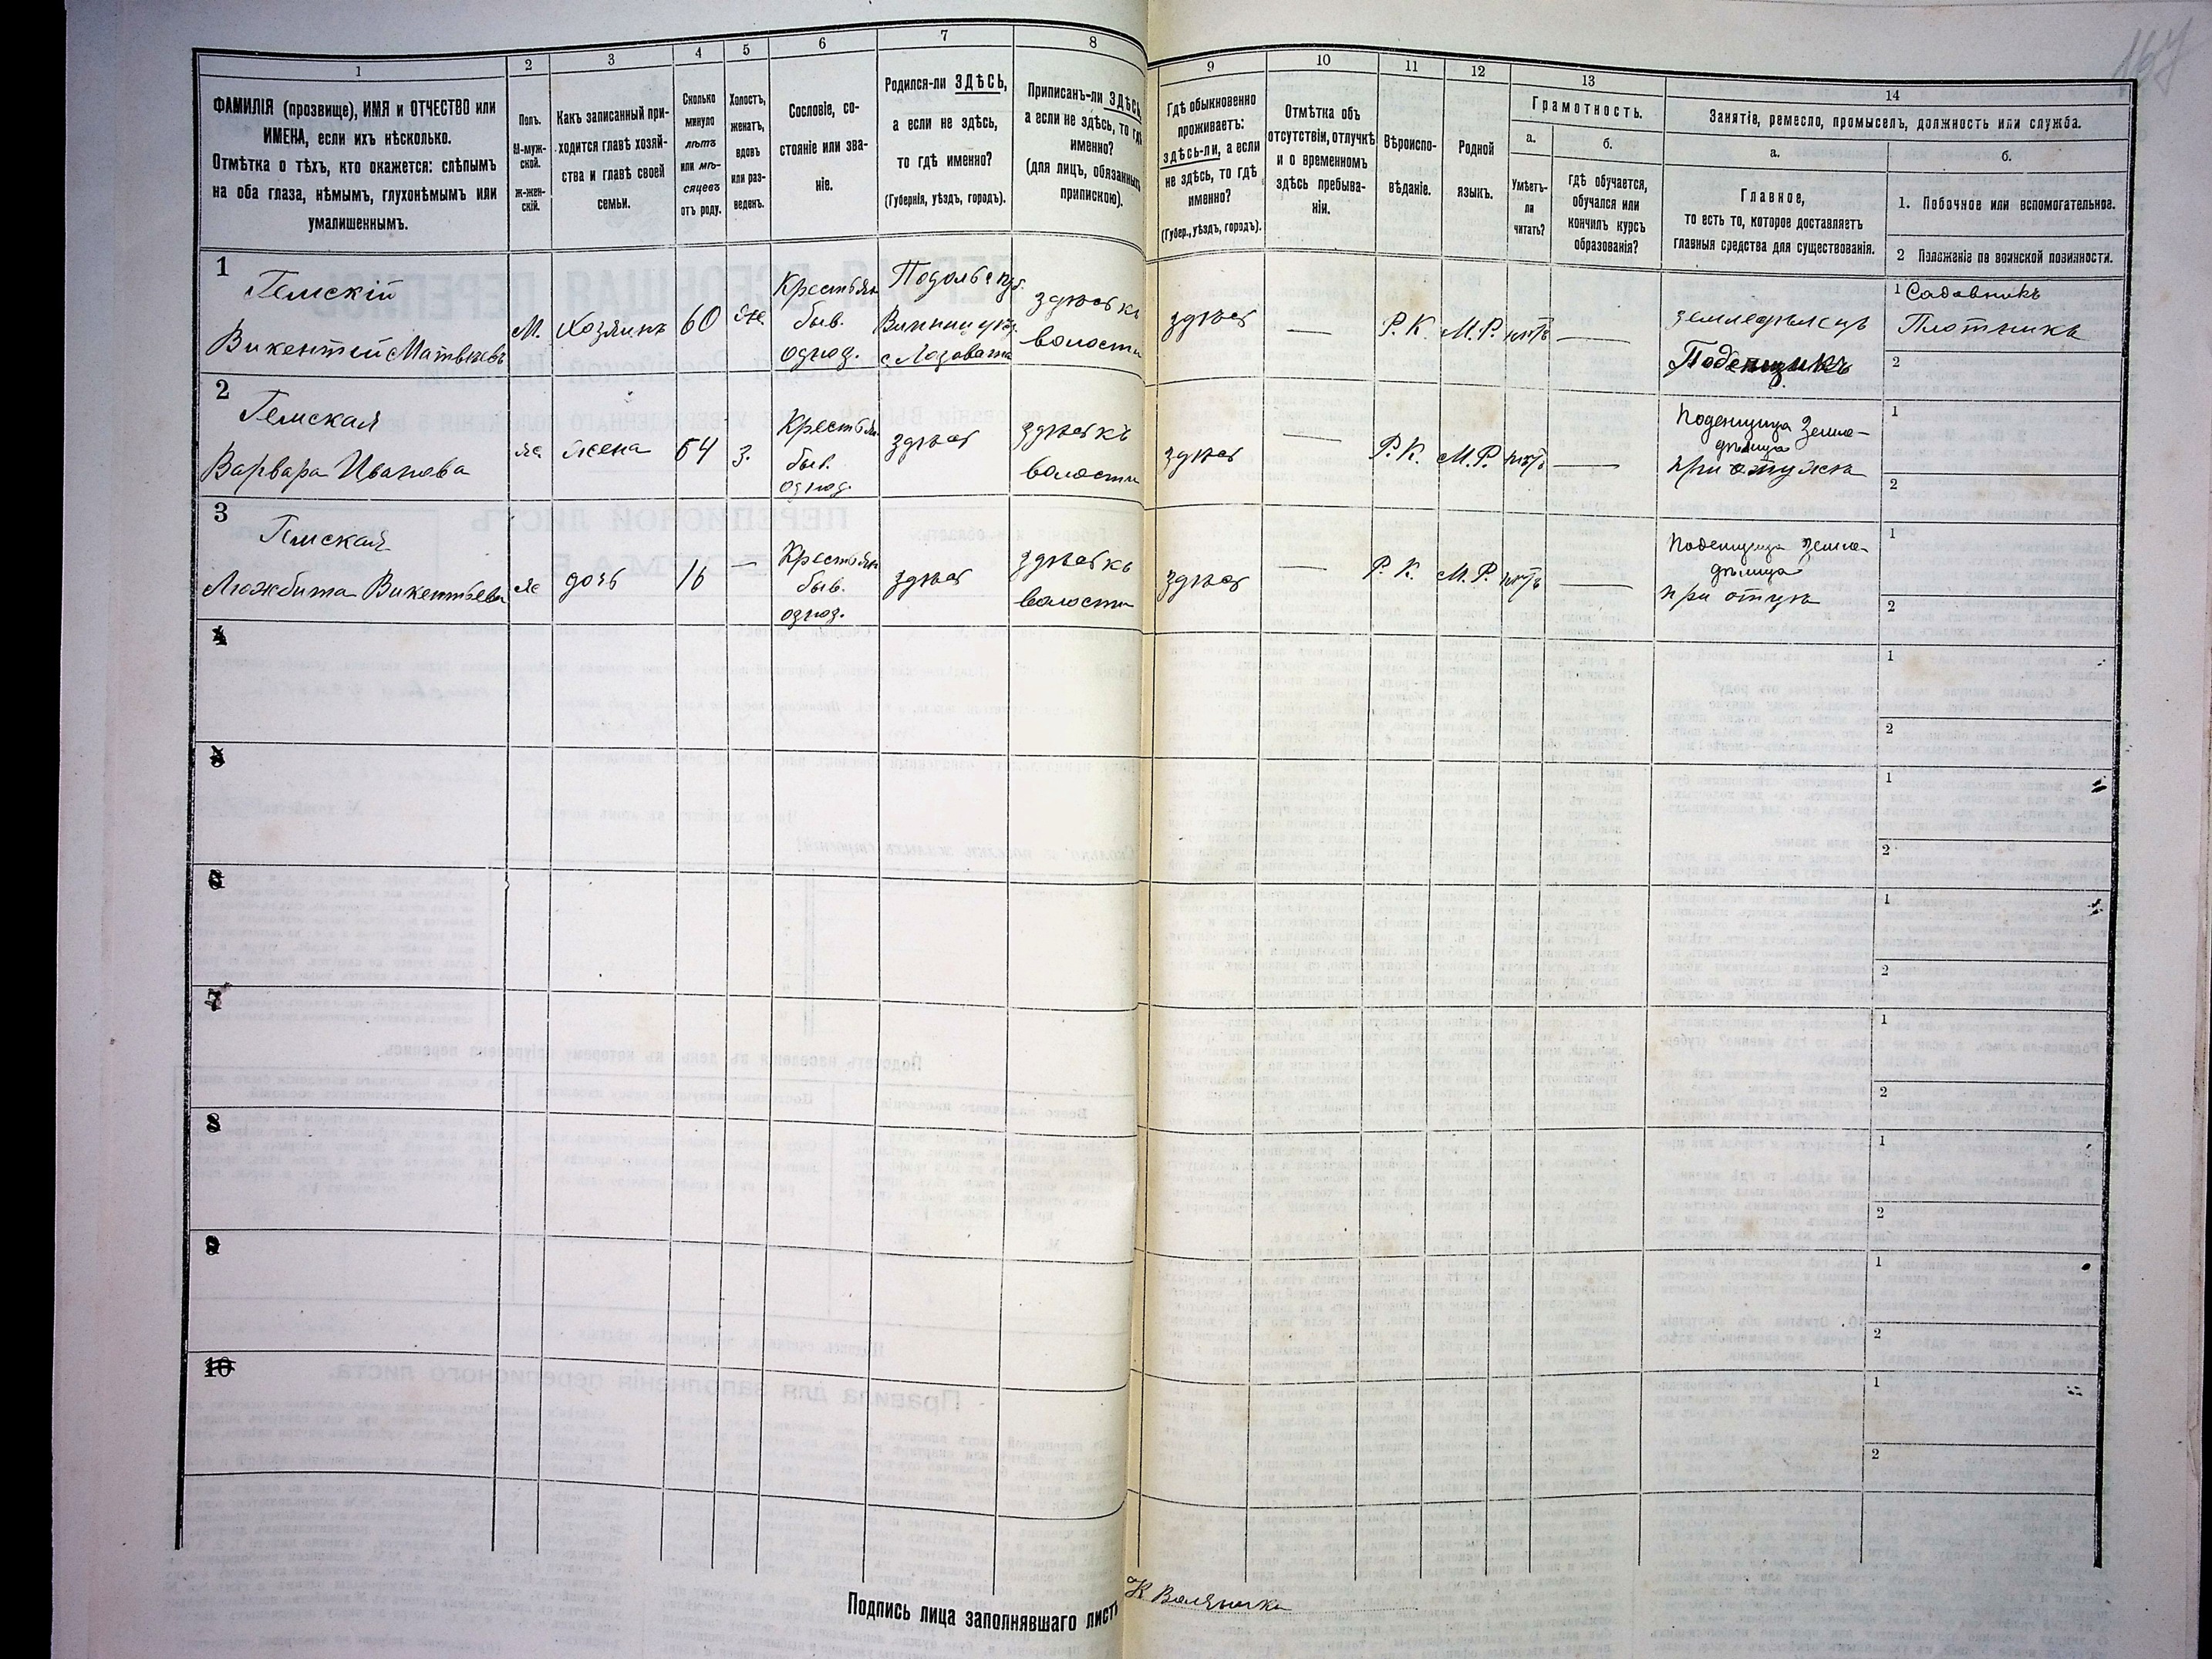 167
1
ФАМИЛІЯ (прозвище), ИМЯ и ОТЧЕСТВО или
ИМЕНА, если ихъ нѣсколько.
Отмѣтка о тѣхъ, кто окажется: слѣпымъ
на оба глаза, нѣмымъ, глухонѣмымъ или
умалишеннымъ.
2
Полъ.
М-муж-
ской.
ж-жен-
скій.
3
Какъ записанный при-
ходится главѣ хозяй-
ства и главѣ своей
семьи.
4
Сколько
минуло
лѣтъ
или мѣ-
сяцевъ
отъ роду.
5
Холостъ,
женатъ,
вдовъ
или раз-
веденъ.
6
Сословіе, со-
стояніе или зва-
ніе.
7
Родился-ли ЗДѢСЬ,
а если не здѣсь,
то гдѣ именно?
(Губернія, уѣздъ, городъ).
8
Приписанъ-ли ЗДѢСЬ,
а если не здѣсь, то гдѣ
именно?
(для лицъ, обязанныхъ
припискою).
9
Гдѣ обыкновенно
проживаетъ:
здѣсь-ли, а если
не здѣсь, то гдѣ
именно?
(Губер., уѣздъ, городъ).
10
Отмѣтка объ
отсутствіи, отлучкѣ
и о временномъ
здѣсь пребыва-
ніи.
11
Вѣроиспо-
вѣданіе.
12
Родной
языкъ.
13
Грамотность.
а.
Умѣетъ-
ли
читать?
б.
гдѣ обучается,
обучался или
кончилъ курсъ
образованія?
14
Занятіе, ремесло, промыселъ, должность или служба.
а.
Главное,
то есть то, которое доставляетъ
главныя средства для существованія.
б.
1. Побочное или вспомогательное.
2 Положеніе по воинской повинности.
1
Гемскій
Викентій Матвѣевъ
М.
Хозяинъ
60
же.
Крестьян
быв.
однод.
Подольск губ.
Винниц у.
с Лозовата
здѣсь къ
волости
здѣсь
—
Р. К.
М. Р.
нѣтъ
—
земледѣлецъ
Поденщикъ
1 Садовникъ
Плотникъ
2
2
Гемская
Варвара Иванова
ж
жена
54
з.
Крестьян
быв.
однод.
здѣсь
здѣсь къ
волости
здѣсь
—
Р. К.
М. Р.
нѣтъ
—
Поденщица Земле-
дѣлица
при мужѣ
1
2
3
Гемская
Люжбита Викентьева
ж
дочь
16
—
Крестьян
быв.
однод.
здѣсь
здѣсь къ
волости
здѣсь
—
Р. К.
М. Р.
нѣтъ
—
Поденщица Земле-
дѣлица
при отцѣ
1
2
4
1
2
5
1
2
6
1
2
7
1
2
8
1
2
9
1
2
10
1
2
Подпись лица заполнявшаго листъ